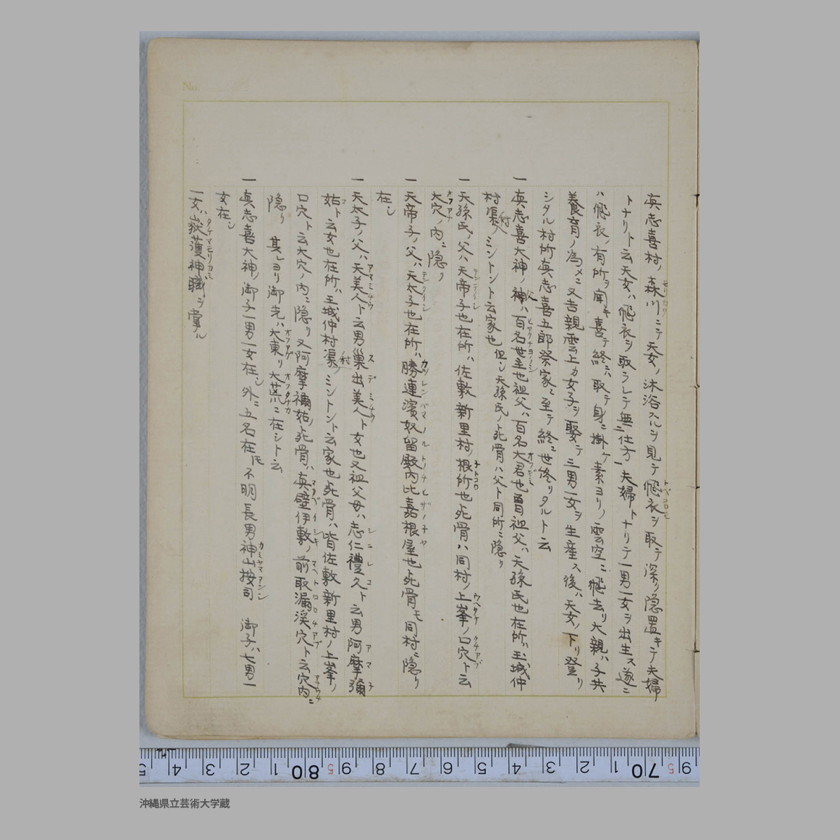 真志喜村ノ森川ニテ天女ノ沐浴スルヲ見テ飛衣ヲ取テ深ク隠置キテ夫婦
トナリト云天女ハ飛衣ヲ取ラレテ無仕子ニ夫婦トナリテ一男一女ヲ出生ス遂ニ
ハ飛衣ノ有所ヲ聞キ喜テ終ニハ取テ身ニ掛ケ素ヨリノ雲空ニ飛去リ大親ハ子共
養育ノ為メニ又吉親雲上カ女子ヲ娶テ三男一女ヲ生産ス後ハ天女ノ下リ登リ
シタル村所真志喜五郎祭家ニ至テ終ニ世終リタルト云
一真志喜大神ノ神ハ百名世主也祖父ハ百名大君也曽祖父ハ天孫氏也在所ハ玉城仲
村渠村ノミントント云家也但シ天孫氏ノ死骨ハ父ト同所ニ隠リ
一天孫氏ノ父ハ天帝子也在所ハ佐敷新里村ノ根所也死骨ハ同村ノ上峯ノ口穴ト云
大穴ノ内ニ隠リ
一天帝子ノ父ハ天太子也在所ハ勝連濱奴留殿内比嘉根屋也死骨モ同村ニ隠リ
在シ
一天太子ノ父ハ天美人ト云男巣出美人ト女也又祖父母ハ志仁禮久ト云男阿摩彌
姑ト云女也在所ハ玉城仲村渠村ノミントント云家也死骨ハ皆佐敷新里村ノ上峯ノ
口穴ト云大穴ノ内ニ隠リ又阿摩彌姑ノ死骨ハ真壁伊敷ノ前取漏渓穴ト云穴内ニ
隠リ 其レヨリ御先ハ大東リ大荒ニ在シト云
一真志喜大神ノ御子一男一女在シ外ニ五名在 不明長男神山按司 御子ハ七男一
女在シ
一女ハ嶽薄神職ヲ蒙ル
沖縄県立芸術大学蔵